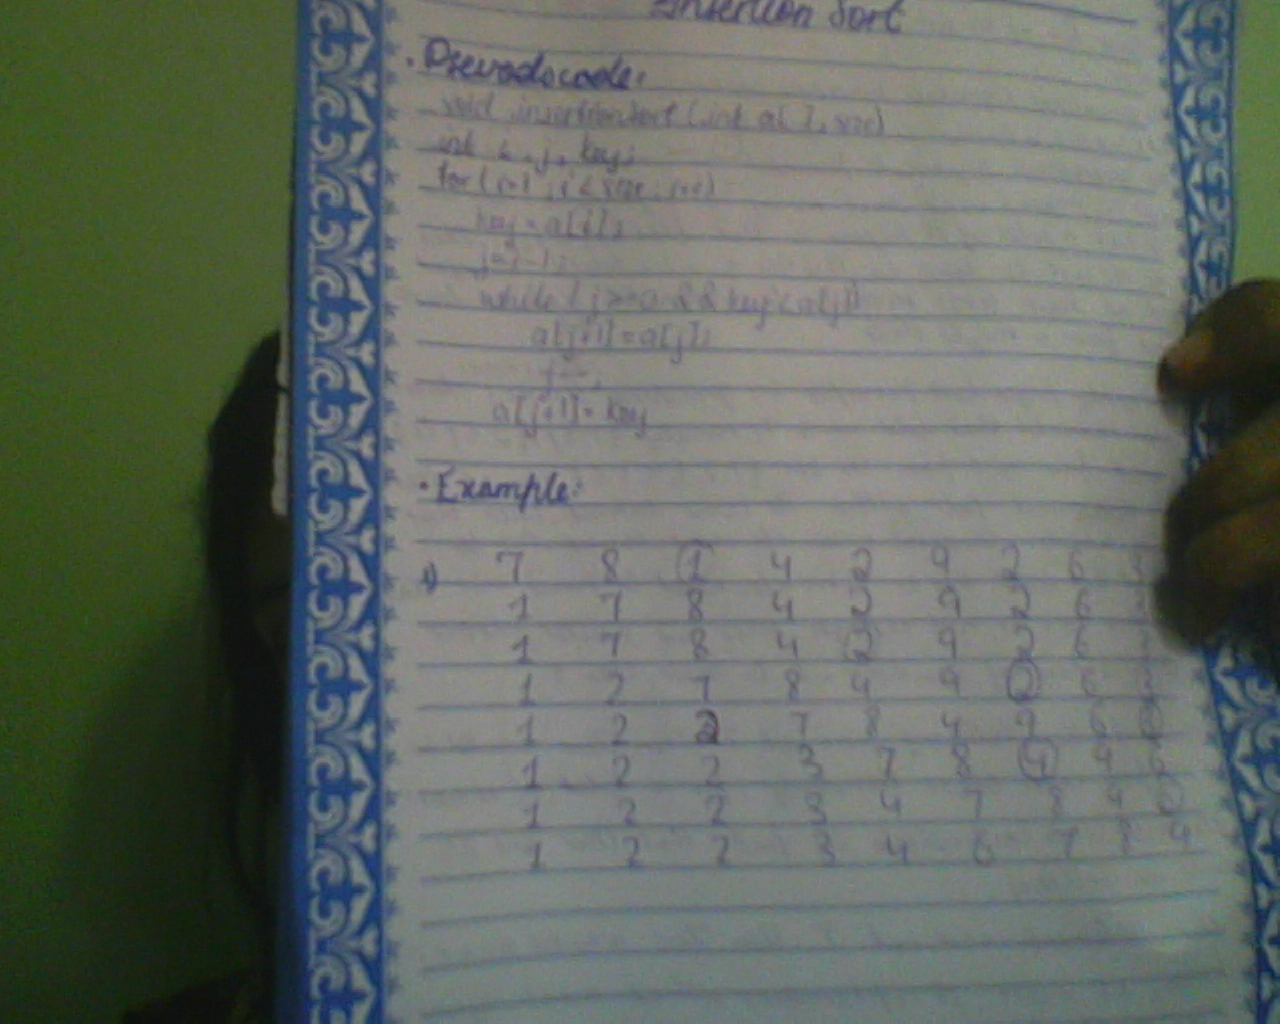 Insertion Sort
. Pseudocode:
void insertionsort (int a[ ], size)
int i, j, key;
for (i=1; i<size; i++)
key = a[i];
j=i-1;
while (j>=0 && key<a[j])
a[j+1]=a[j];
j--;
a[j+1]= key
. Example:
1) 7 8 1 4 2 9 2 6 3
1 7 8 4 2 9 2 6
1 7 8 4 2 9 2 6
1 2 7 8 4 9 2 6 3
1 2 2 7 8 4 9 6 3
1 2 2 3 7 8 4 9 6
1 2 2 3 4 7 8 9 6
1 2 2 3 4 6 7 8 9